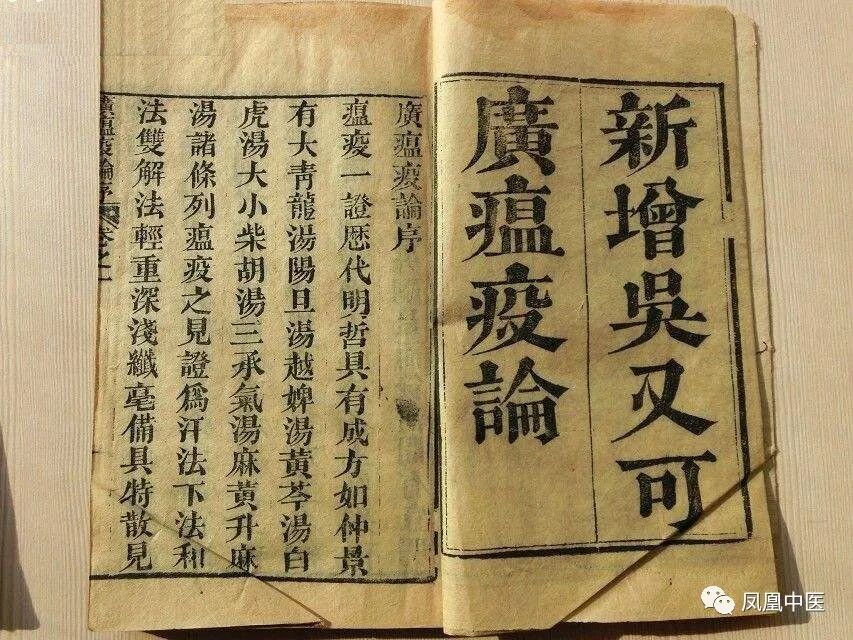 新增吳又可
廣瘟疫論
廣瘟疫論序
瘟疫一證歷代明哲具有成方如仲景
有大靑龍湯陽旦湯越婢湯黃芩湯白
虎湯大小柴胡湯三承氣湯麻黃升麻
湯諸條列瘟疫之見證爲汗法下法和
法雙解法輕重深淺纖毫備具特散見
廣瘟疫論序
凤凰中医